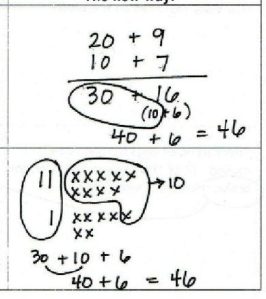 20 + 9
10 + 7
30 + 16
(10+6)
40 + 6 = 46
11 xxxxx → 10
xxxx
1 xxxxx
xx
30 + 10 + 6
40 + 6 = 46